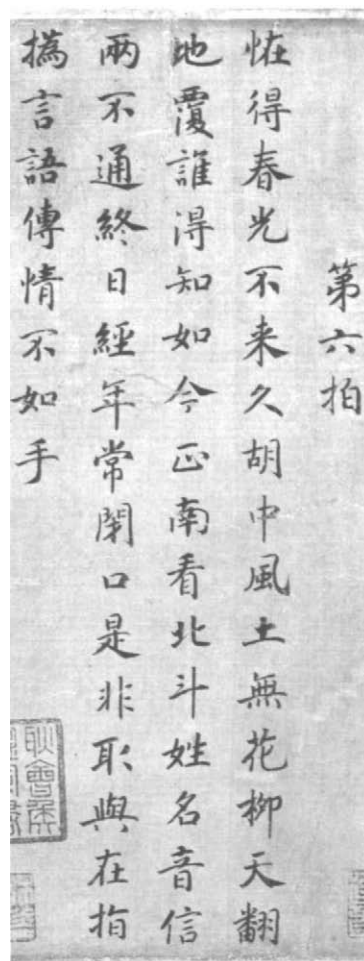 第六拍
恠得春光不来久胡中風土無花柳天翻
地覆誰淂知如今正南看北斗姓名音信
兩不通終日經年常閇口是非取與在指
撝言語傳情不如手